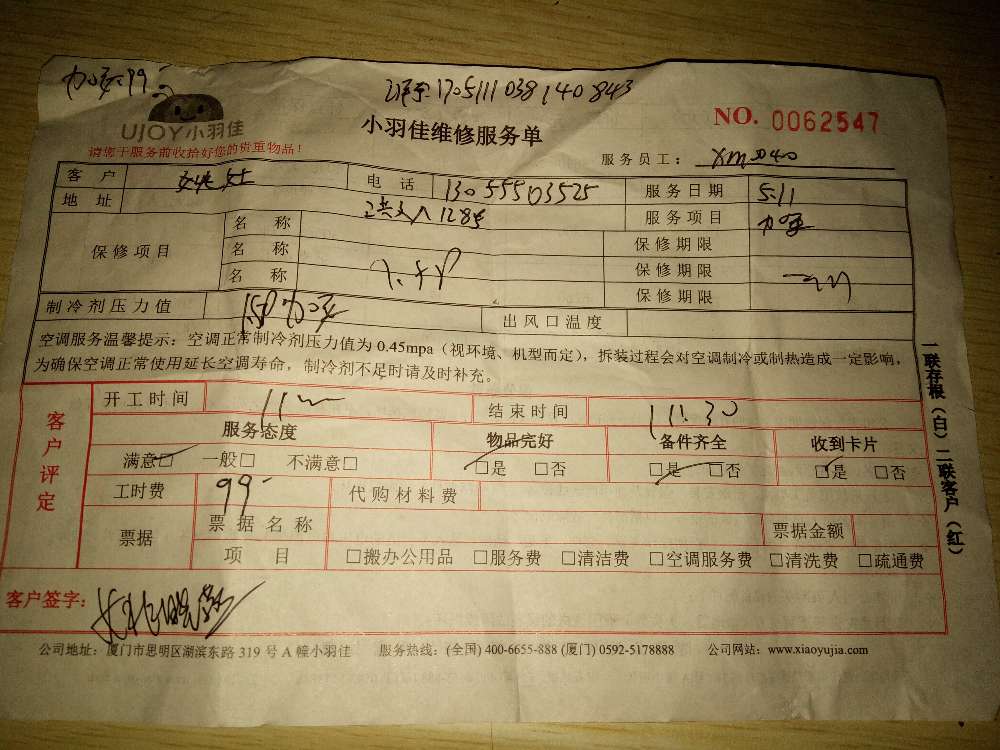 加氟99
17051111038140843
UJOY小羽佳
小羽佳维修服务单
NO. 0062547
请您于服务前收拾好您的贵重物品！
服务员工： XM2040
客 户 电 话 13055503525 服务日期 5.11
地 址 128号 服务项目 加氟
保修项目 名 称 保修期限
名 称 保修期限
名 称 保修期限
制冷剂压力值 加氟 出风口温度
空调服务温馨提示：空调正常制冷剂压力值为 0.45mpa（视环境、机型而定），拆装过程会对空调制冷或制热造成一定影响，
为确保空调正常使用延长空调寿命，制冷剂不足时请及时补充。
一联存根（白）二联客户（红）
客户评定
开工时间 结束时间 11:30
服务态度 物品完好 备件齐全 收到卡片
满意□ 一般□ 不满意□ □是 □否 □是 □否 □是 □否
工时费 99- 代购材料费
票据 票据名称 票据金额
项 目 □搬办公用品 □服务费 □清洁费 □空调服务费 □清洗费 □疏通费
客户签字：
公司地址：厦门市思明区湖滨东路 319 号 A 幢小羽佳 服务热线：(全国) 400-6655-888 (厦门) 0592-5178888 公司网站：www.xiaoyujia.com